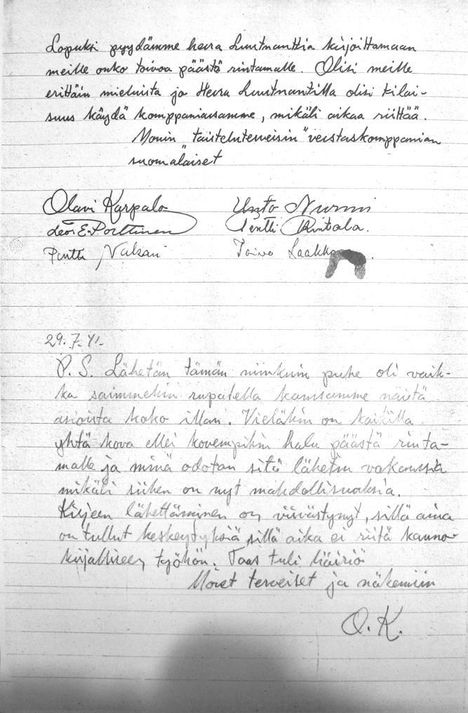 Lopuksi pyydämme herra Luutnanttia kirjoittamaan
meille onko toivoa päästä rintamalle. Olisi meille
erittäin mieluista ja Herra Luutnantilla olisi tilai-
suus käydä komppaniassamme, mikäli aikaa riittää.
Monin "taisteluterveisin" verstaskomppanian
suomalaiset
Olavi Karpalo Uszto Nurmi
Leo. E. Porttinen Pentti Rintala.
Pentti Valsari Toivo Laakko
29.7.41.
P.S. Lähetän tämän niinkuin puhe oli vaik-
ka saimmekin rupatella kanssamme näitä
asioista koko illan. Vieläkin on kaikilla
yhtä kova ellei kovempikin halu päästä rinta-
malle ja minä odotan sitä lähetin vakanssia
mikäli siihen on nyt mahdollisuuksia.
Kirjeen lähettäminen on viivästynyt, sillä aina
on tullut keskeytyksiä sillä aika ei riitä kauno-
kirjalliseen työhön. Taas tuli häiriö
Monet terveiset ja näkemiin
O.K.